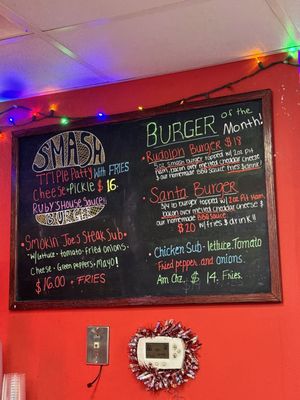 SMASH
BURGER
TRiple Patty with FRIES
Cheese • Pickle $16.
Ruby's House Sauce
• Smokin Joe's Steak Sub
w/ Lettuce • tomato • Fried onions
Cheese • Green peppers • Mayo!
$16.00 + FRIES
BURGER of the
Month!
• Rudolph Burger $18
5oz smash Burger topped w/ 2oz
Ham, bacon over melted cheddar cheese
& our homemade BBQ Sauce fries & drink!
Santa Burger
3/4 lb Burger topped w/ 2oz Pit Ham
bacon over melted cheddar cheese &
our homemade BBQ Sauce
$20 w/ fries & drink!!
• Chicken Sub - lettuce. Tomato
Fried pepper, and onions.
Am Chz. $ 14. Fries.